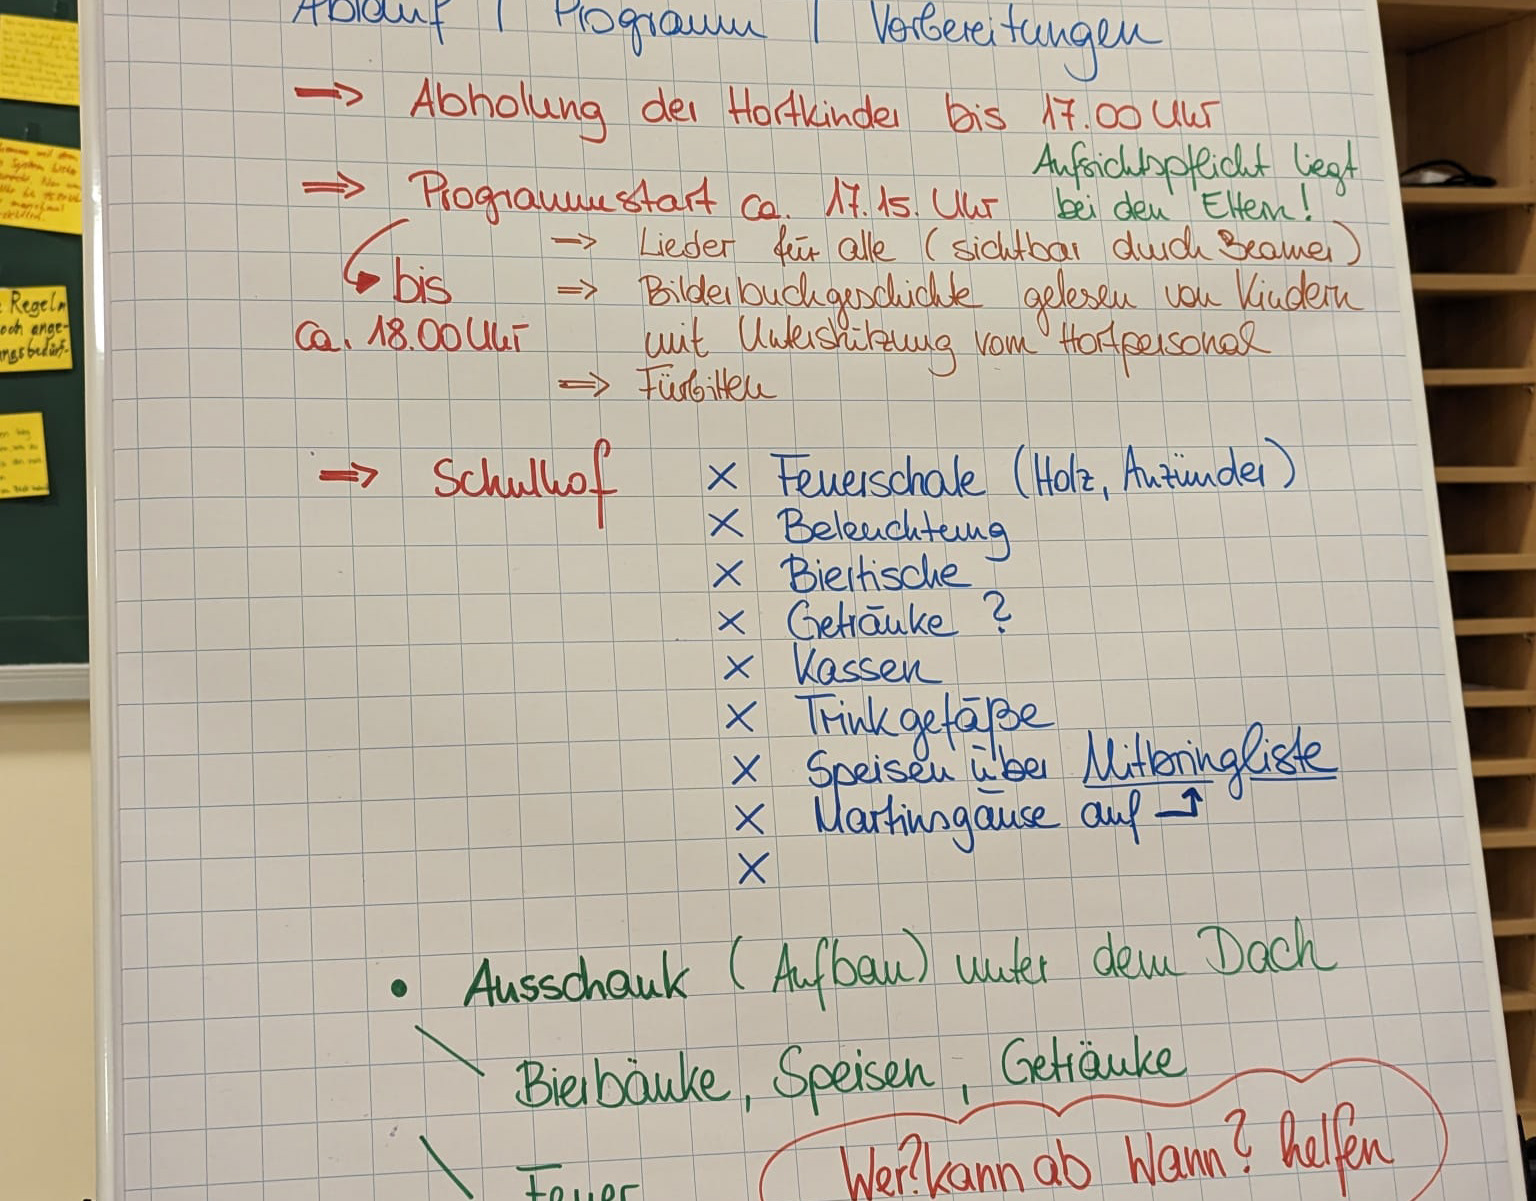 Ablauf | Programm | Vorbereitungen
⇒ Abholung der Hortkinder bis 17.00 Uhr
Aufsichtspflicht liegt
bei den Eltern!
⇒ Programmstart ca. 17.15. Uhr
bis
ca. 18.00 Uhr
⇒ Lieder für alle (sichtbar durch Beamer)
⇒ Bilderbuchgeschichte gelesen von Kindern
mit Unterstützung vom Hortpersonal
⇒ Fürbitten
⇒ Schulhof
× Feuerschale (Holz, Anzünder)
× Beleuchtung
× Biertische
× Getränke ?
× Kassen
× Trinkgefäße
× Speisen über Mitbringliste
× Martinsgänse auf ↑
×
• Ausschank (Aufbau) unter dem Dach
\ Bierbänke, Speisen, Getränke
\ Feuer
Wer? kann ab Wann? helfen
Regeln